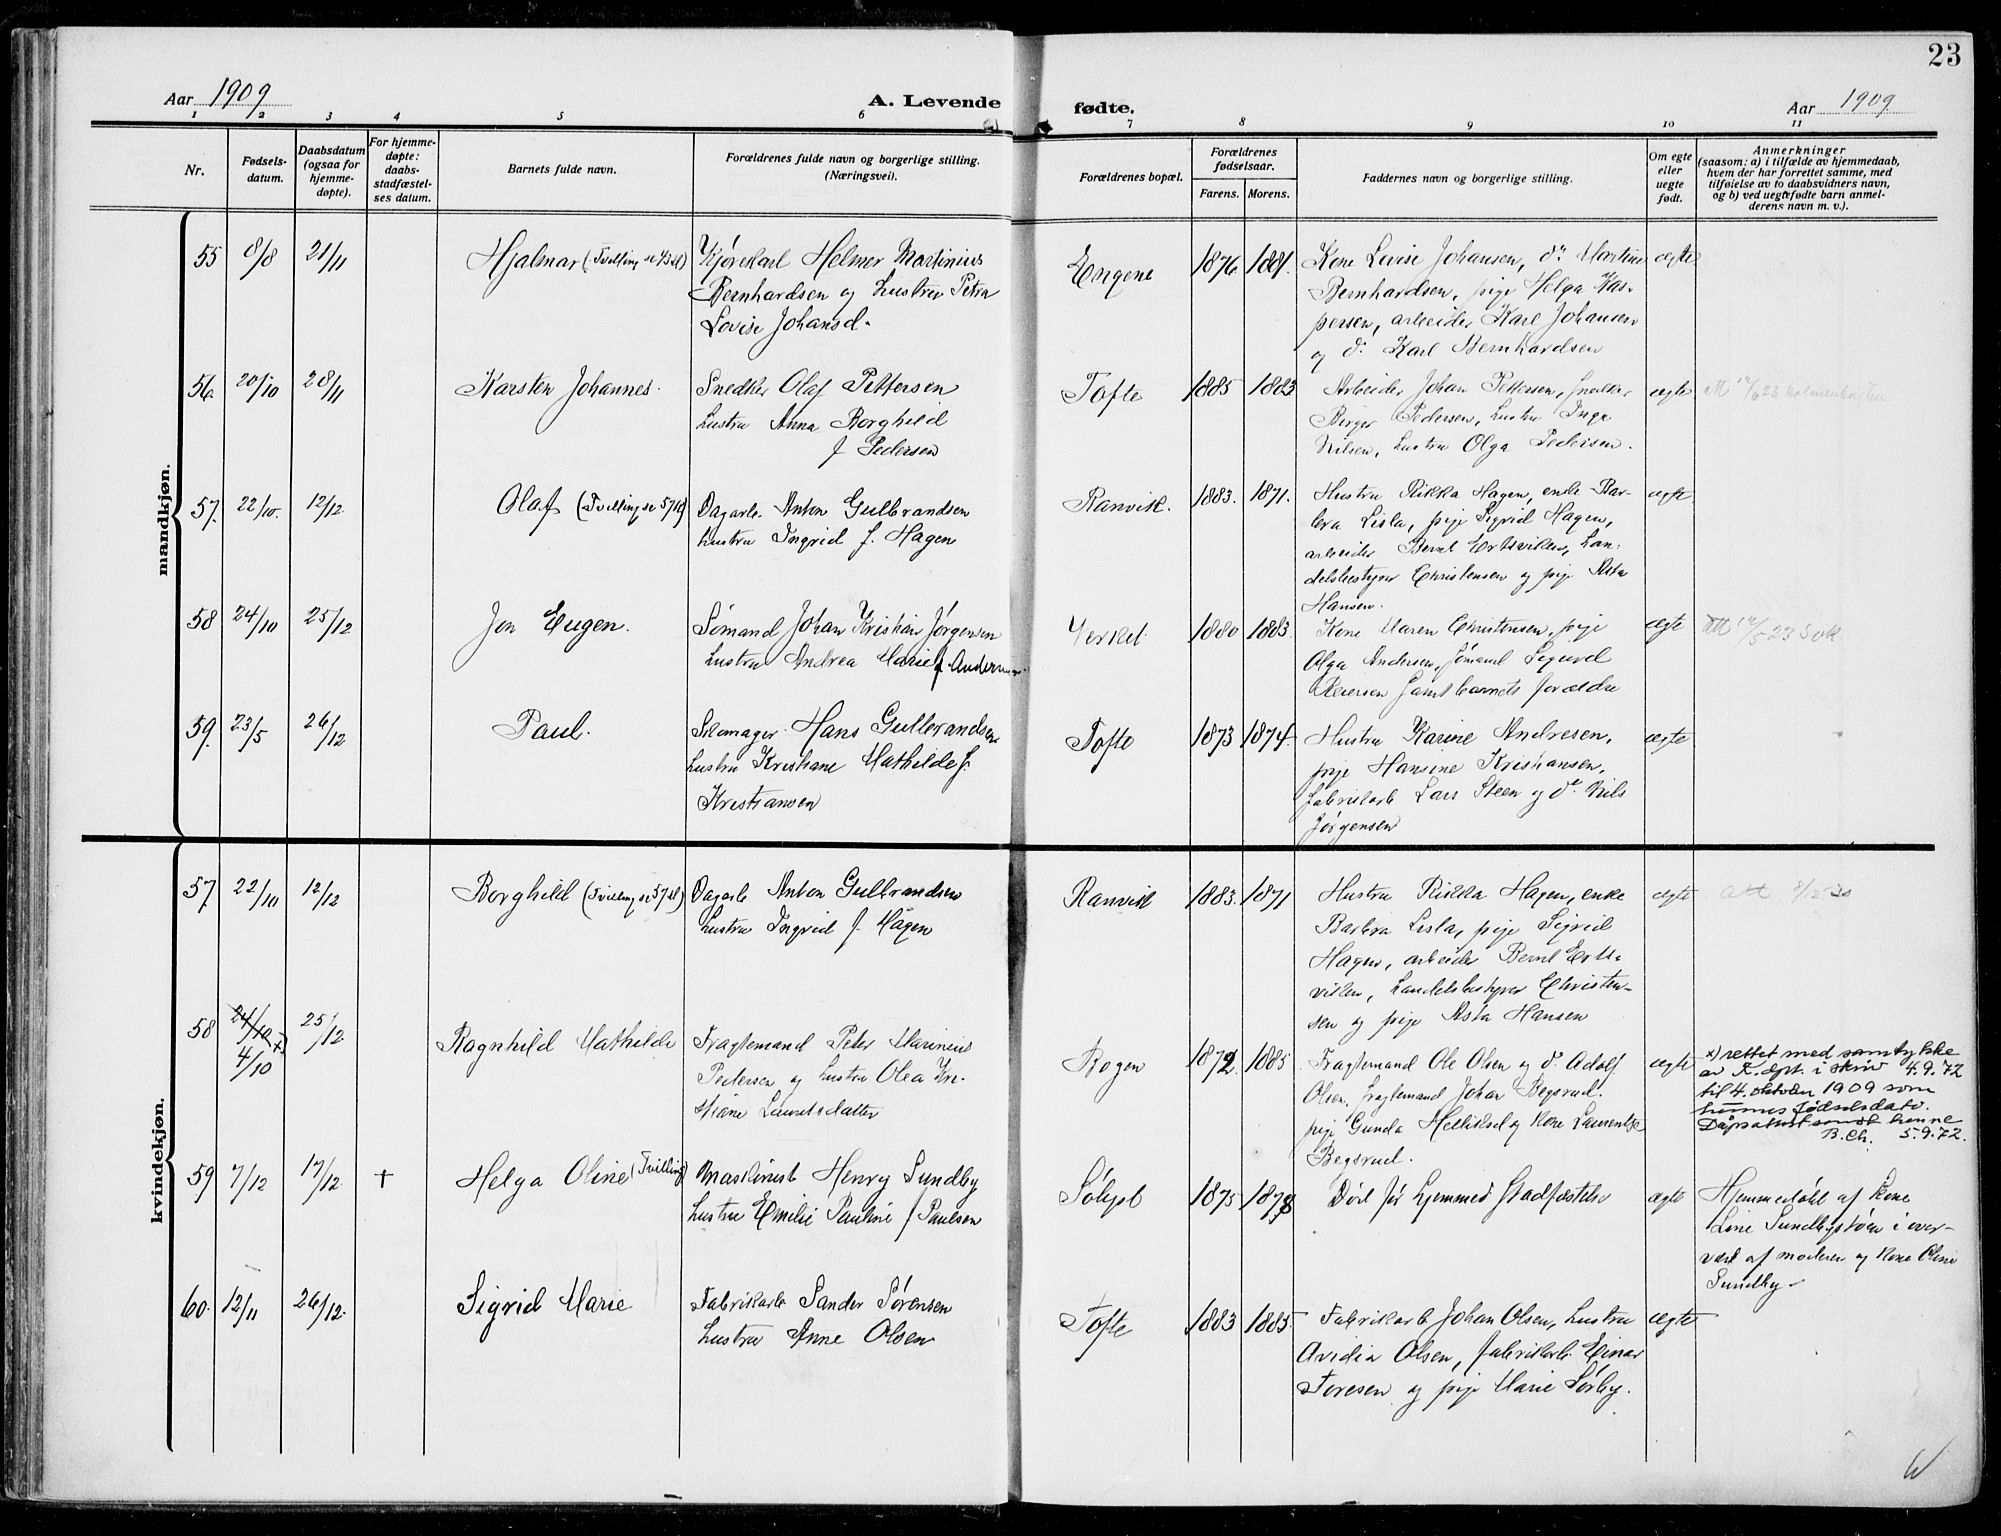 23
Aar 1909
A. Levende
fødte.
Aar 1909.
1 2 3 4 5 6
7 8 9 10 11
Nr.
Fødsels-
datum.
Daabsdatum
(ogsaa for
hjemme-
døpte).
For hjemme-
døpte:
daabs-
stadfæstel-
ses datum.
Barnets fulde navn.
Forældrenes fulde navn og borgerlige stilling.
(Næringsvei).
Forældrenes bopæl.
Forældrenes
fødselsaar.
Farens. Morens.
Faddernes navn og borgerlige stilling.
Om egte
eller
uegte
født.
Anmerkninger
(saasom: a) i tilfælde av hjemmedaab,
hvem der har forrettet samme, med
tilføielse av to daabsvidners navn,
og b) ved uegtefødte barn anmel-
derens navn m. v.).
mandkjøn.
55 8/8 21/11
Hjalmar (Tvilling se
Kjørekarl Helmer Martinius
Bernhardsen og hustru Petra
Lovise Johansd.
Engene
1876 1881.
Kone Lovise Johansen, do Martine
Bernhardsen, pige Helga Kas-
persen, arbeider Karl Johansen
og do Karl Bernhardsen
ægte
56 20/10 28/11
Karsten Johannes.
Snedker Olaf Pettersen
hustru Anna Borghild
f. Pedersen
Tofte
1885 1883
Arbeider Johan Pettersen, snedker
Birger Pedersen, hustru Inga
Nilsen, hustru Olga Pedersen.
ægte
57. 22/10. 12/12.
Olaf (Tvilling se 57
Dagarb. Anton Gulbrandsen
hustru Ingrid f. Hagen
Ranvik.
1883. 1871.
Hustru Rikka Hagen, enke Bar-
bra Lisla, pige Sigrid Hagen,
arbeider Bernt Ertsviken, han-
delsbestyrer Christensen og pige Asta
Hansen.
ægte
58 24/10 25/12
Jon Eugen.
Sømand Johan Kristian Jørgensen
hustru Andrea Marie f. Andersen
Verket
1880 1883.
Kone Maren Christensen, pige
Olga Andersen, sømand Sigurd
Reiersen samt barnets forældre
ægte
59. 23/5 26/12
Paul.
Hans Gulbrandsen
hustru Kristiane Mathilde f.
Kristiansen
Tofte
1873 1874.
Hustru Karine Andresen,
pige Hansine Kristiansen,
fabrikarb. Lars Steen og do Nils
Jørgensen
ægte
kvindekjøn.
57 22/10 12/12
Borghild (Tvilling se 57
Dagarb. Anton Gulbrandsen
hustru Ingrid f. Hagen
Ranvik
1883. 1871
Hustru Rikka Hagen, enke
Barbra Lisla, pige Sigrid
Hagen, arbeider Bernt Erts-
viken, handelsbestyrer Christen-
sen og pige Asta Hansen
ægte
58 24/10 x) 25/12
4/10
Ragnhild Mathilde
Fragtemand Peter Marinius
Pedersen og hustru Olea Kri-
stiane Lauritsdatter
Bogen
1872 1885
Fragtemand Ole Olsen og do Adolf
Olsen, fragtemand Johan Begsrud,
pige Gunda Helliksd og Kone Laurentze
Begsrud.
ægte
x) rettet med samtykke
av K.dept. i skriv 4.9.72
til 4. oktober 1909 som
hennes fødselsdato.
Dåpsattest sendt henne
B.Ch. 5.9.72.
59 7/12 17/12 †
Helga Oline (Tvilling)
Maskinist Henry Sundby
hustru Emilie Pauline f. Paulsen
1875 1878
Død før hjemmed. Stadfæstelse
ægte
Hjemmedøbt af Kone
Line Sundbystøen i over-
vær af moderen og Kone Oline
Sundby
60. 12/11 26/12.
Sigrid Marie
Fabrikarb. Sander Sørensen
hustru Anne Olsen
Tofte
1883 1885.
Fabrikarb. Johan Olsen, hustru
Avidia Olsen, fabrikarb. Einar
Toresen og pige Marie Sørby.
ægte